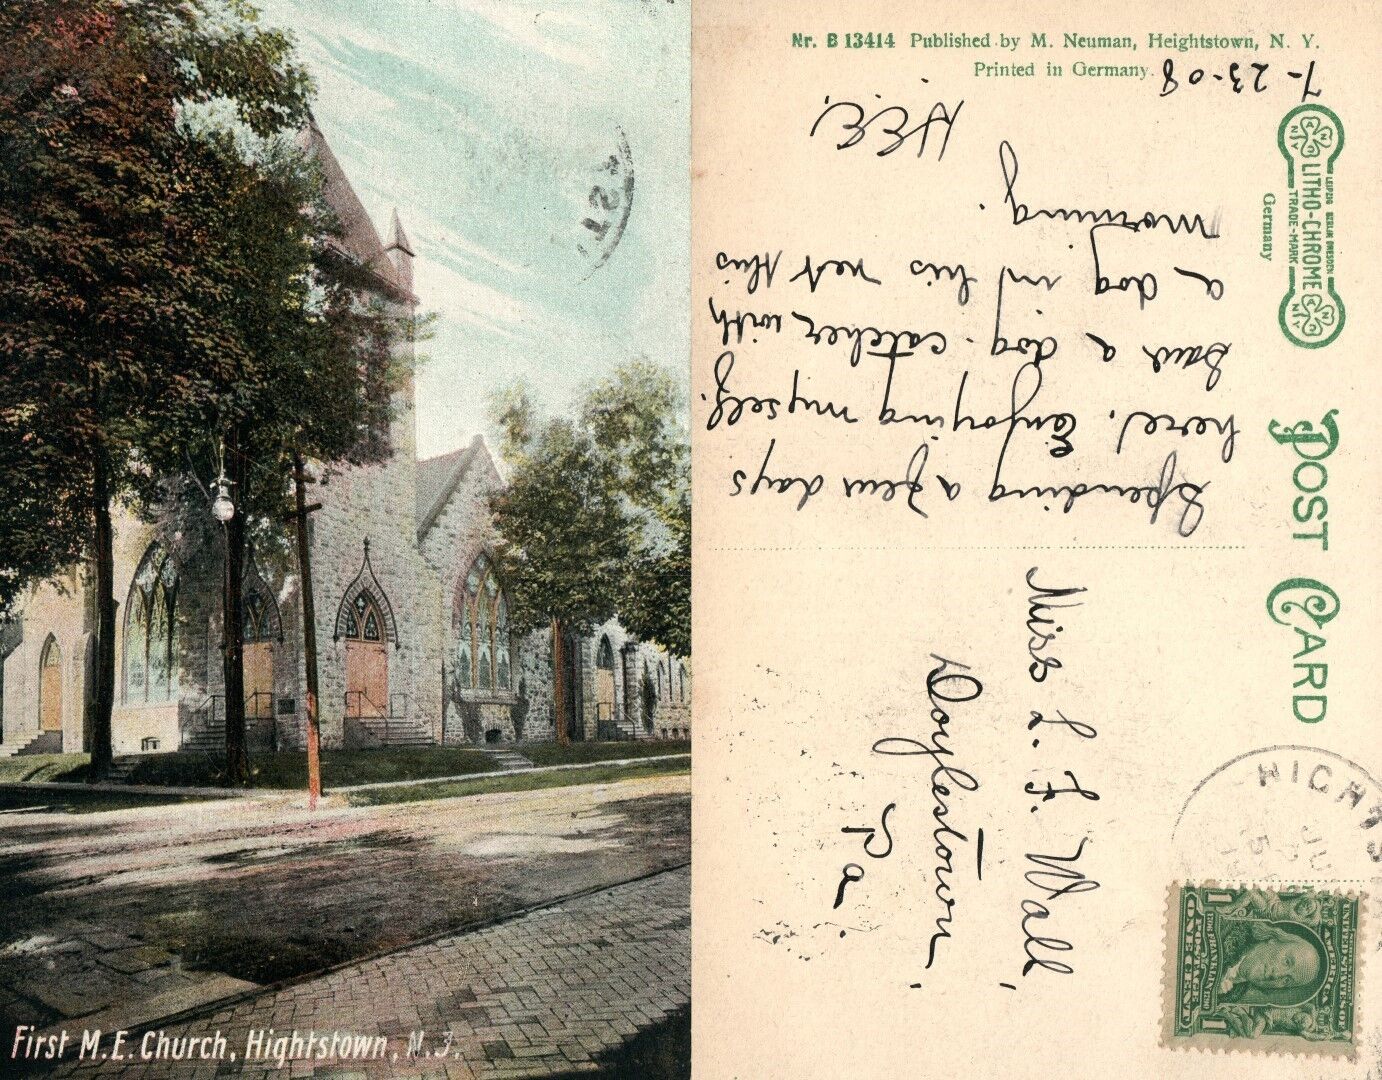 First M.E. Church, Hightstown, N.J.
Nr. B 13414 Published by M. Neuman, Heightstown, N. Y.
Printed in Germany.
7-23-08
LITHO-CHROME
TRADE-MARK
LEIPZIG BERLIN DRESDEN
Germany
POST CARD
Spending a few days
here. Enjoying myself.
Saw a dog-catcher with
a dog in his net this
morning.
H.E.E.
Miss L. F. Wall,
Doylestown,
Pa.
HIGHTS
JUL